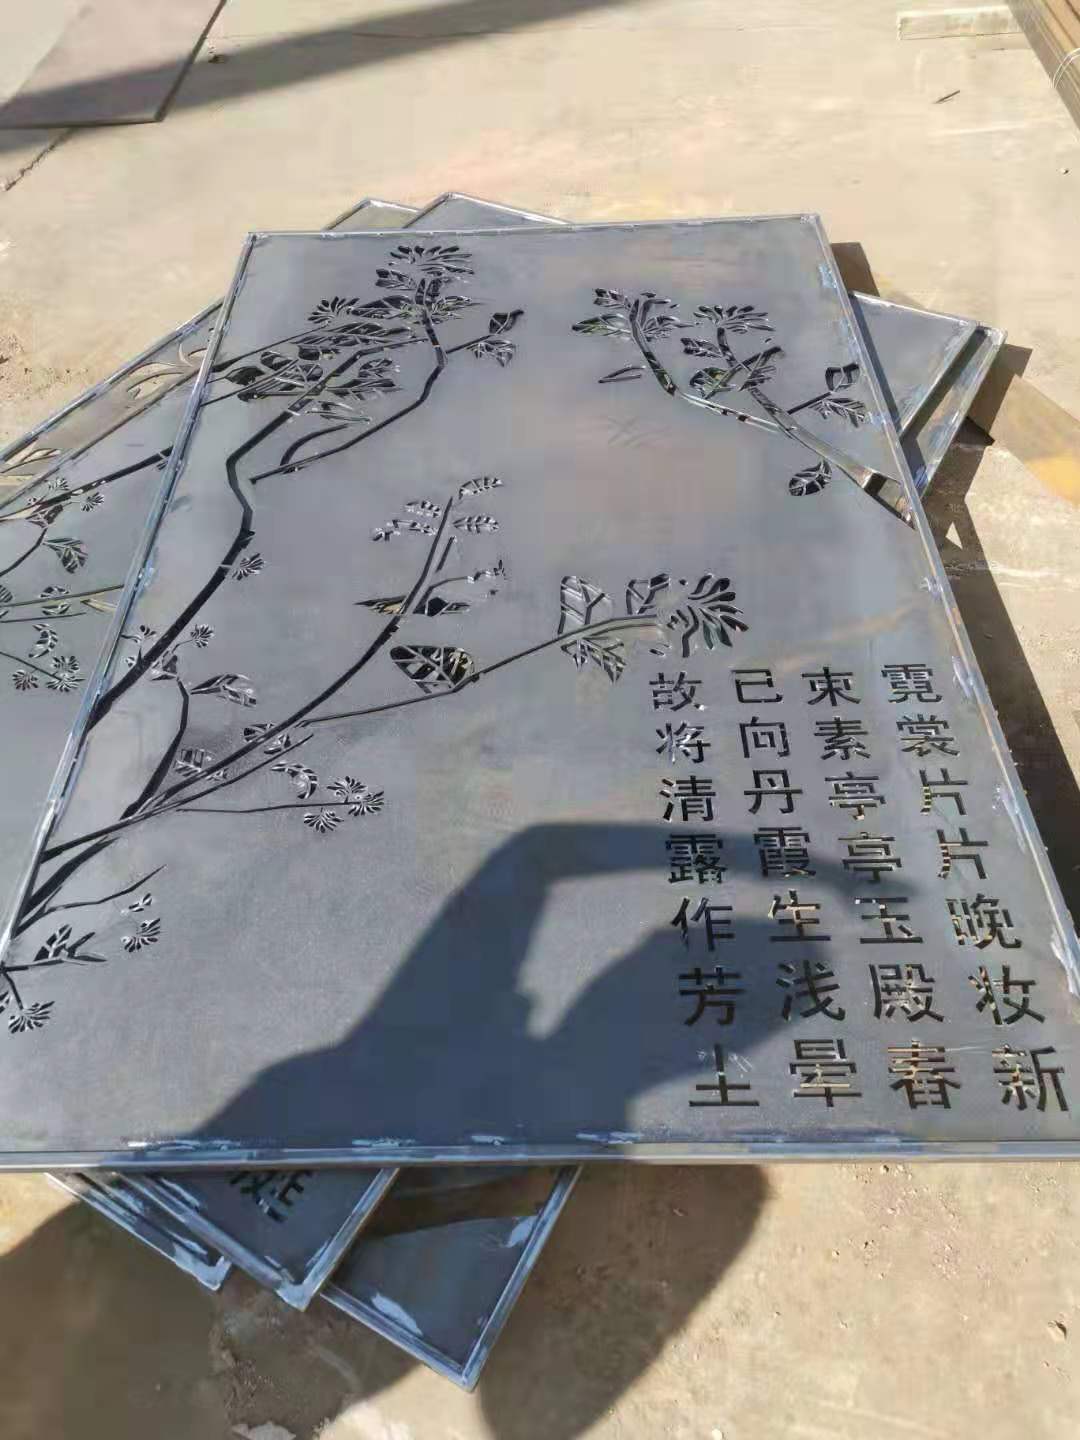 霓裳片片晚妆新
束素亭亭玉殿春
已向丹霞生浅晕
故将清露作芳土